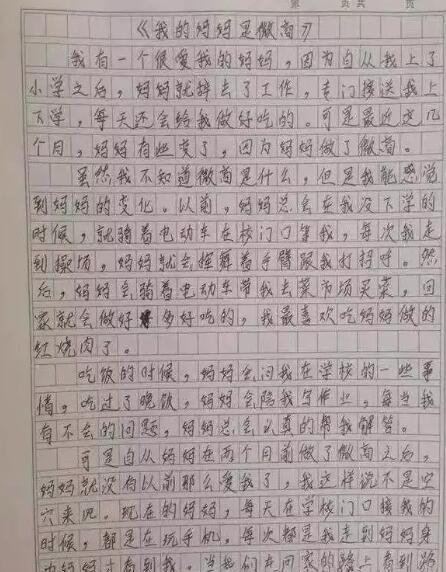 第 页 共 页
《我的妈妈是微商》
我有一个很爱我的妈妈,因为自从我上了
小学之后,妈妈就辞去了工作,专门接送我上
下学,每天还会给我做好吃的。可是最近这几
个月,妈妈有些变了,因为妈妈做了微商。
虽然我不知道微商是什么,但是我能感觉
到妈妈的变化。以前,妈妈总会在我没下学的
时候,就骑着电动车在校门口等我,每次我走
到操场,妈妈就会挥舞着手臂跟我打招呼。然
后,妈妈会骑着电动车带我去菜市场买菜,回
家就会做好多好吃的,我最喜欢吃妈妈做的
红烧肉了。
吃饭的时候,妈妈会问我在学校的一些事
情,吃过了晚饭,妈妈会陪我写作业,每当我
有不会的问题,妈妈总会认真的帮我解答。
可是自从妈妈在两个月前做了微商之后,
妈妈就没有以前那么爱我了,我这样说不是空
穴来风。现在的妈妈,每天在学校门口接我的
时候,都是在玩手机,每次都是我走到妈妈身
边妈妈才看到我。当我们在回家的路上看到路